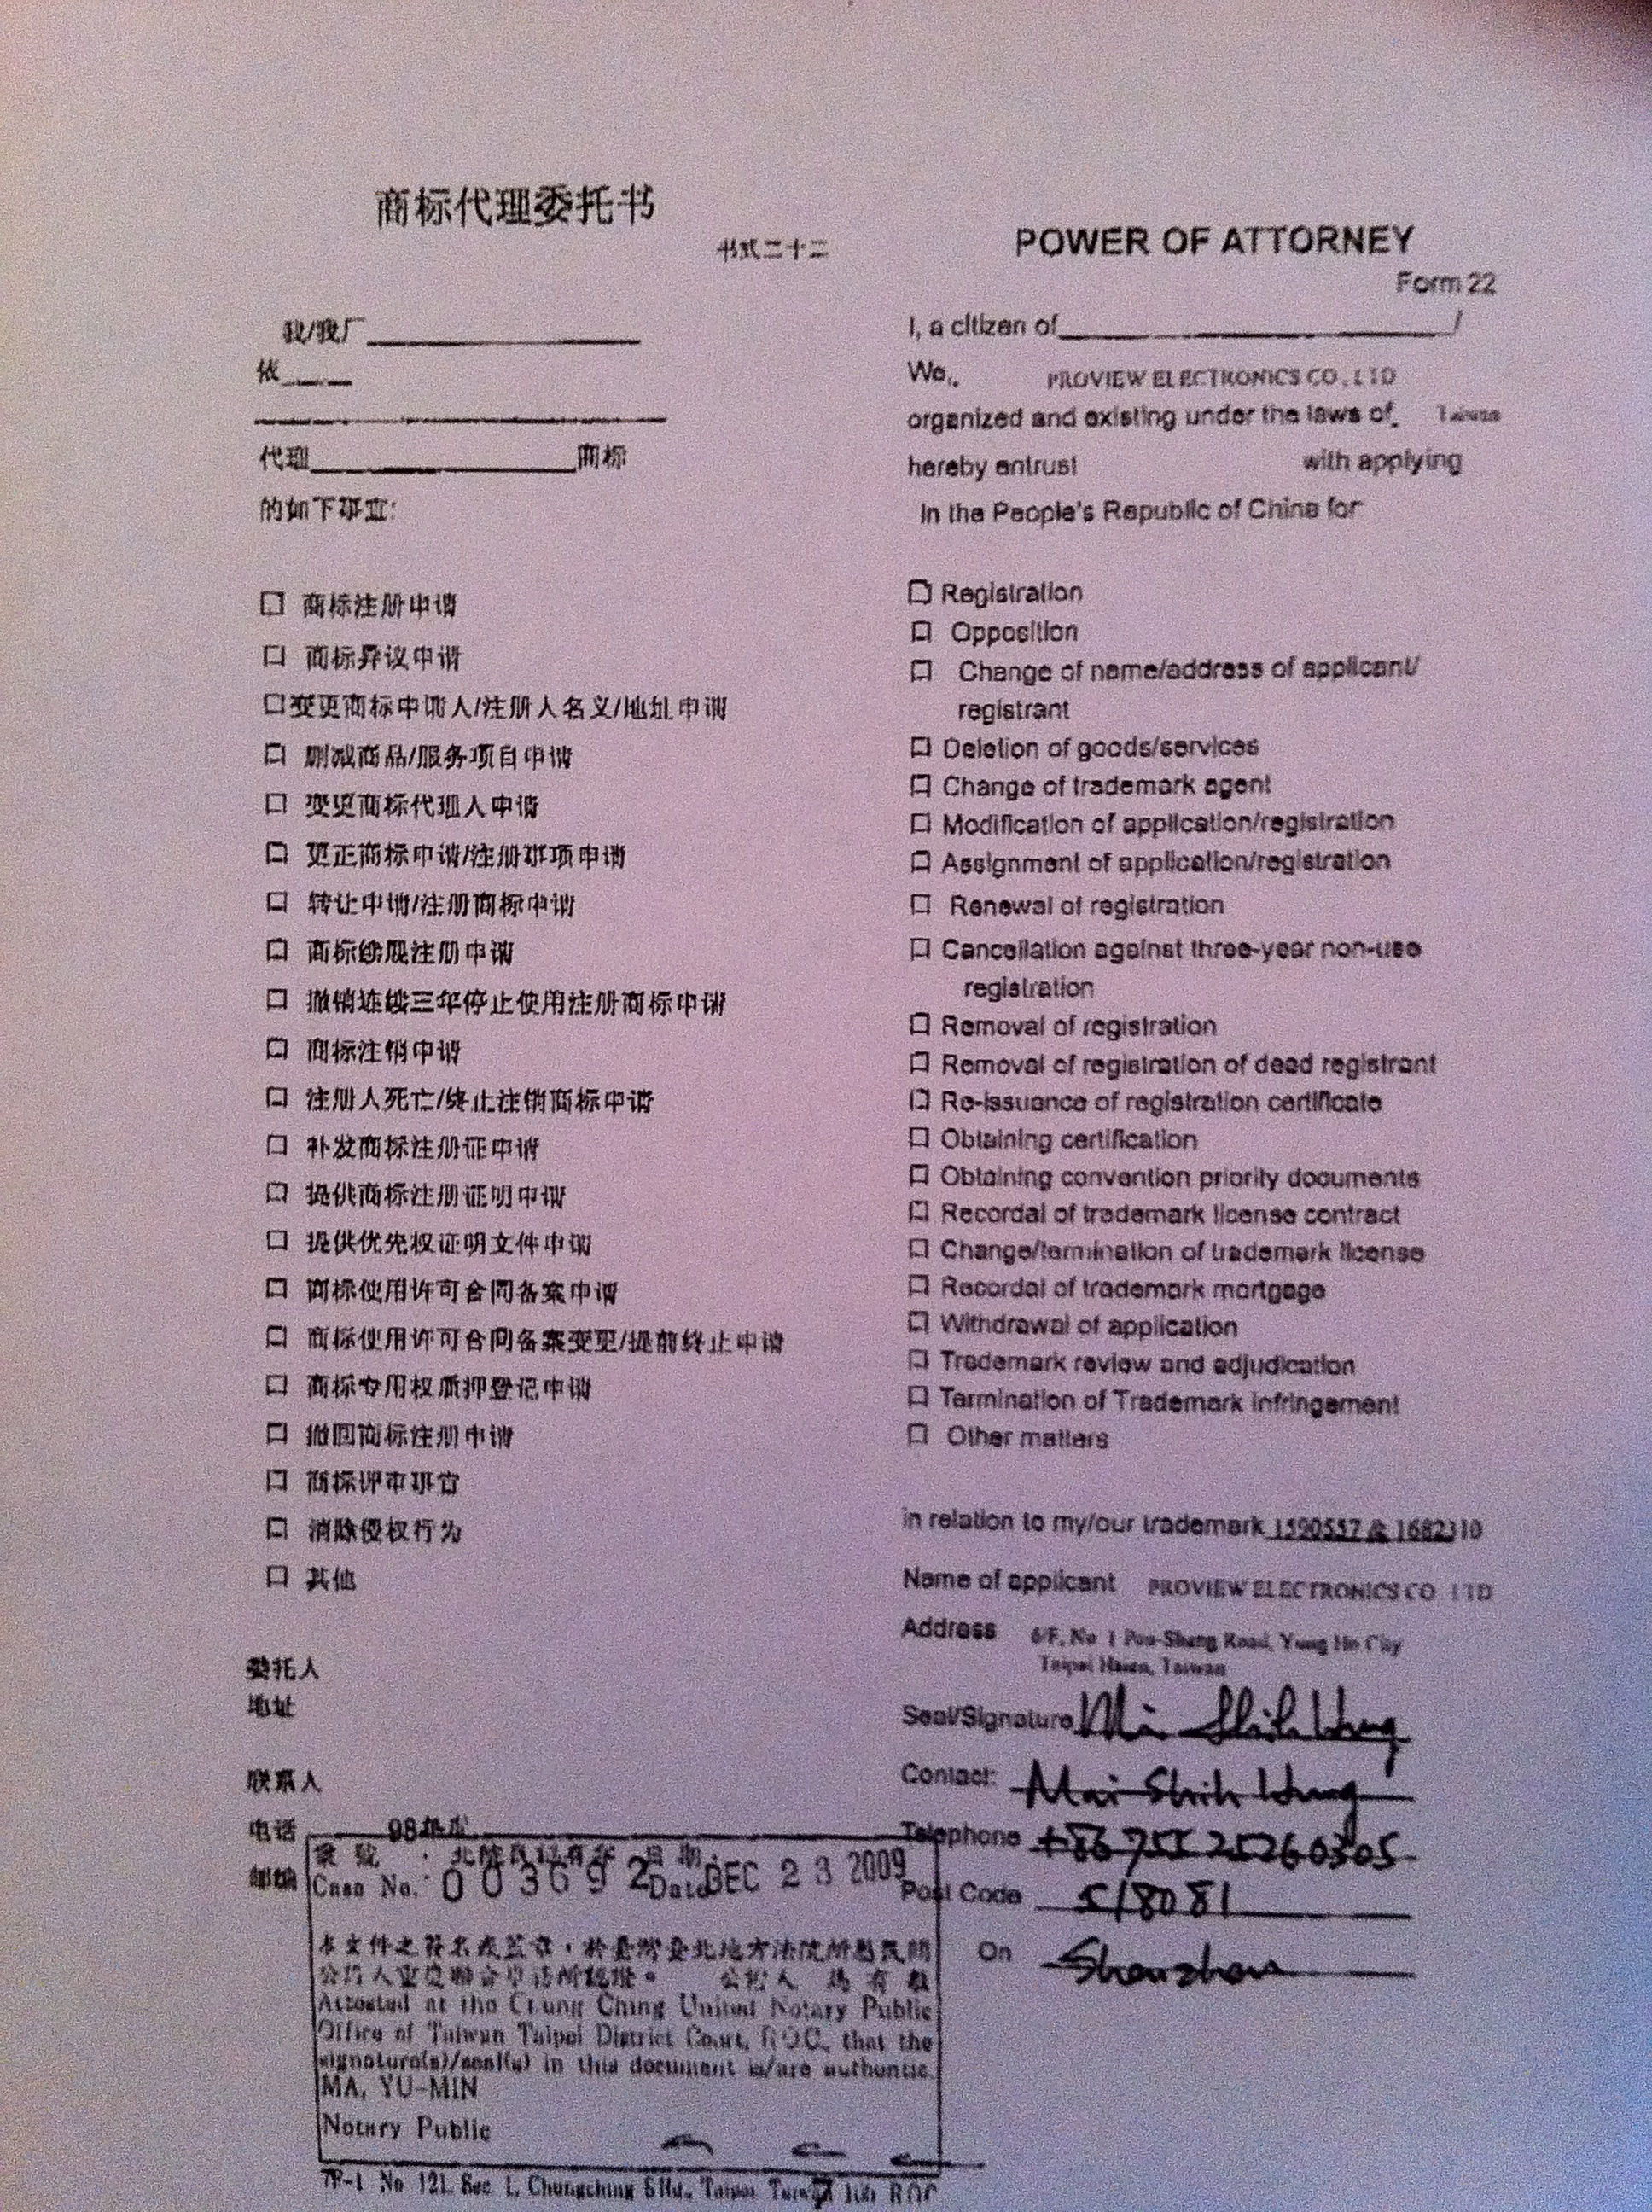 商标代理委托书
书式二十二
我/我厂
依
代理 商标
的如下事宜:
□ 商标注册申请
□ 商标异议申请
□变更商标申请人/注册人名义/地址申请
□ 删减商品/服务项目申请
□ 变更商标代理人申请
□ 更正商标申请/注册事项申请
□ 转让申请/注册商标申请
□ 商标续展注册申请
□ 撤销连续三年停止使用注册商标申请
□ 商标注销申请
□ 注册人死亡/终止注销商标申请
□ 补发商标注册证申请
□ 提供商标注册证明申请
□ 提供优先权证明文件申请
□ 商标使用许可合同备案申请
□ 商标使用许可合同备案变更/提前终止申请
□ 商标专用权质押登记申请
□ 撤回商标注册申请
□ 商标评审事宜
□ 消除侵权行为
□ 其他
委托人
地址
联系人
电话
邮编
POWER OF ATTORNEY
Form 22
I, a citizen of /
We, PROVIEW ELECTRONICS CO., LTD
organized and existing under the laws of Taiwan
hereby entrust with applying
in the People's Republic of China for
□ Registration
□ Opposition
□ Change of name/address of applicant/
registrant
□ Deletion of goods/services
□ Change of trademark agent
□ Modification of application/registration
□ Assignment of application/registration
□ Renewal of registration
□ Cancellation against three-year non-use
registration
□ Removal of registration
□ Removal of registration of dead registrant
□ Re-issuance of registration certificate
□ Obtaining certification
□ Obtaining convention priority documents
□ Recordal of trademark license contract
□ Change/termination of trademark license
□ Recordal of trademark mortgage
□ Withdrawal of application
□ Trademark review and adjudication
□ Termination of Trademark infringement
□ Other matters
in relation to my/our trademark 1590557 & 1682310
Name of applicant PROVIEW ELECTRONICS CO LTD
Address 6/F, No 1 Pou-Sheng Road, Yung Ho City
Taipei Hsien, Taiwan
Seal/Signature Mai Shih Hung
Contact: Mai Shih Hung
Telephone +86 755 25260305
Post Code 518081
On Shenzhen
98年度
案號 日期
Case No. 003692 Date DEC 23 2009
本文件之簽名或蓋章,於臺灣臺北地方法院所屬民間
公證人 聯合事務所認證。 公證人
Attested at the Chung Ching United Notary Public
Office of Taiwan Taipei District Court, ROC, that the
signature(s)/seal(s) in this document is/are authentic.
MA, YU-MIN
Notary Public
7F-1 No 121, Sec 1, Chungching S Rd., Taipei ROC